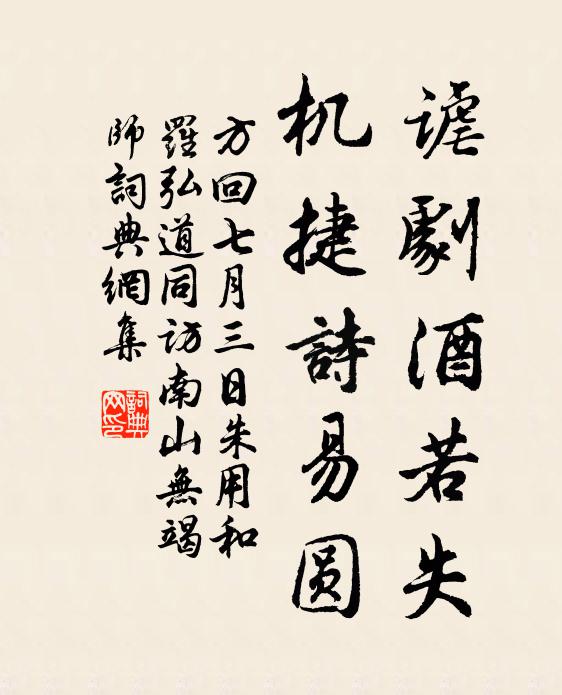 謔劇酒若失
机捷詩易圆
方回七月三日朱用和
羅弘道同访南山無竭
師詞典網集
詞典网印